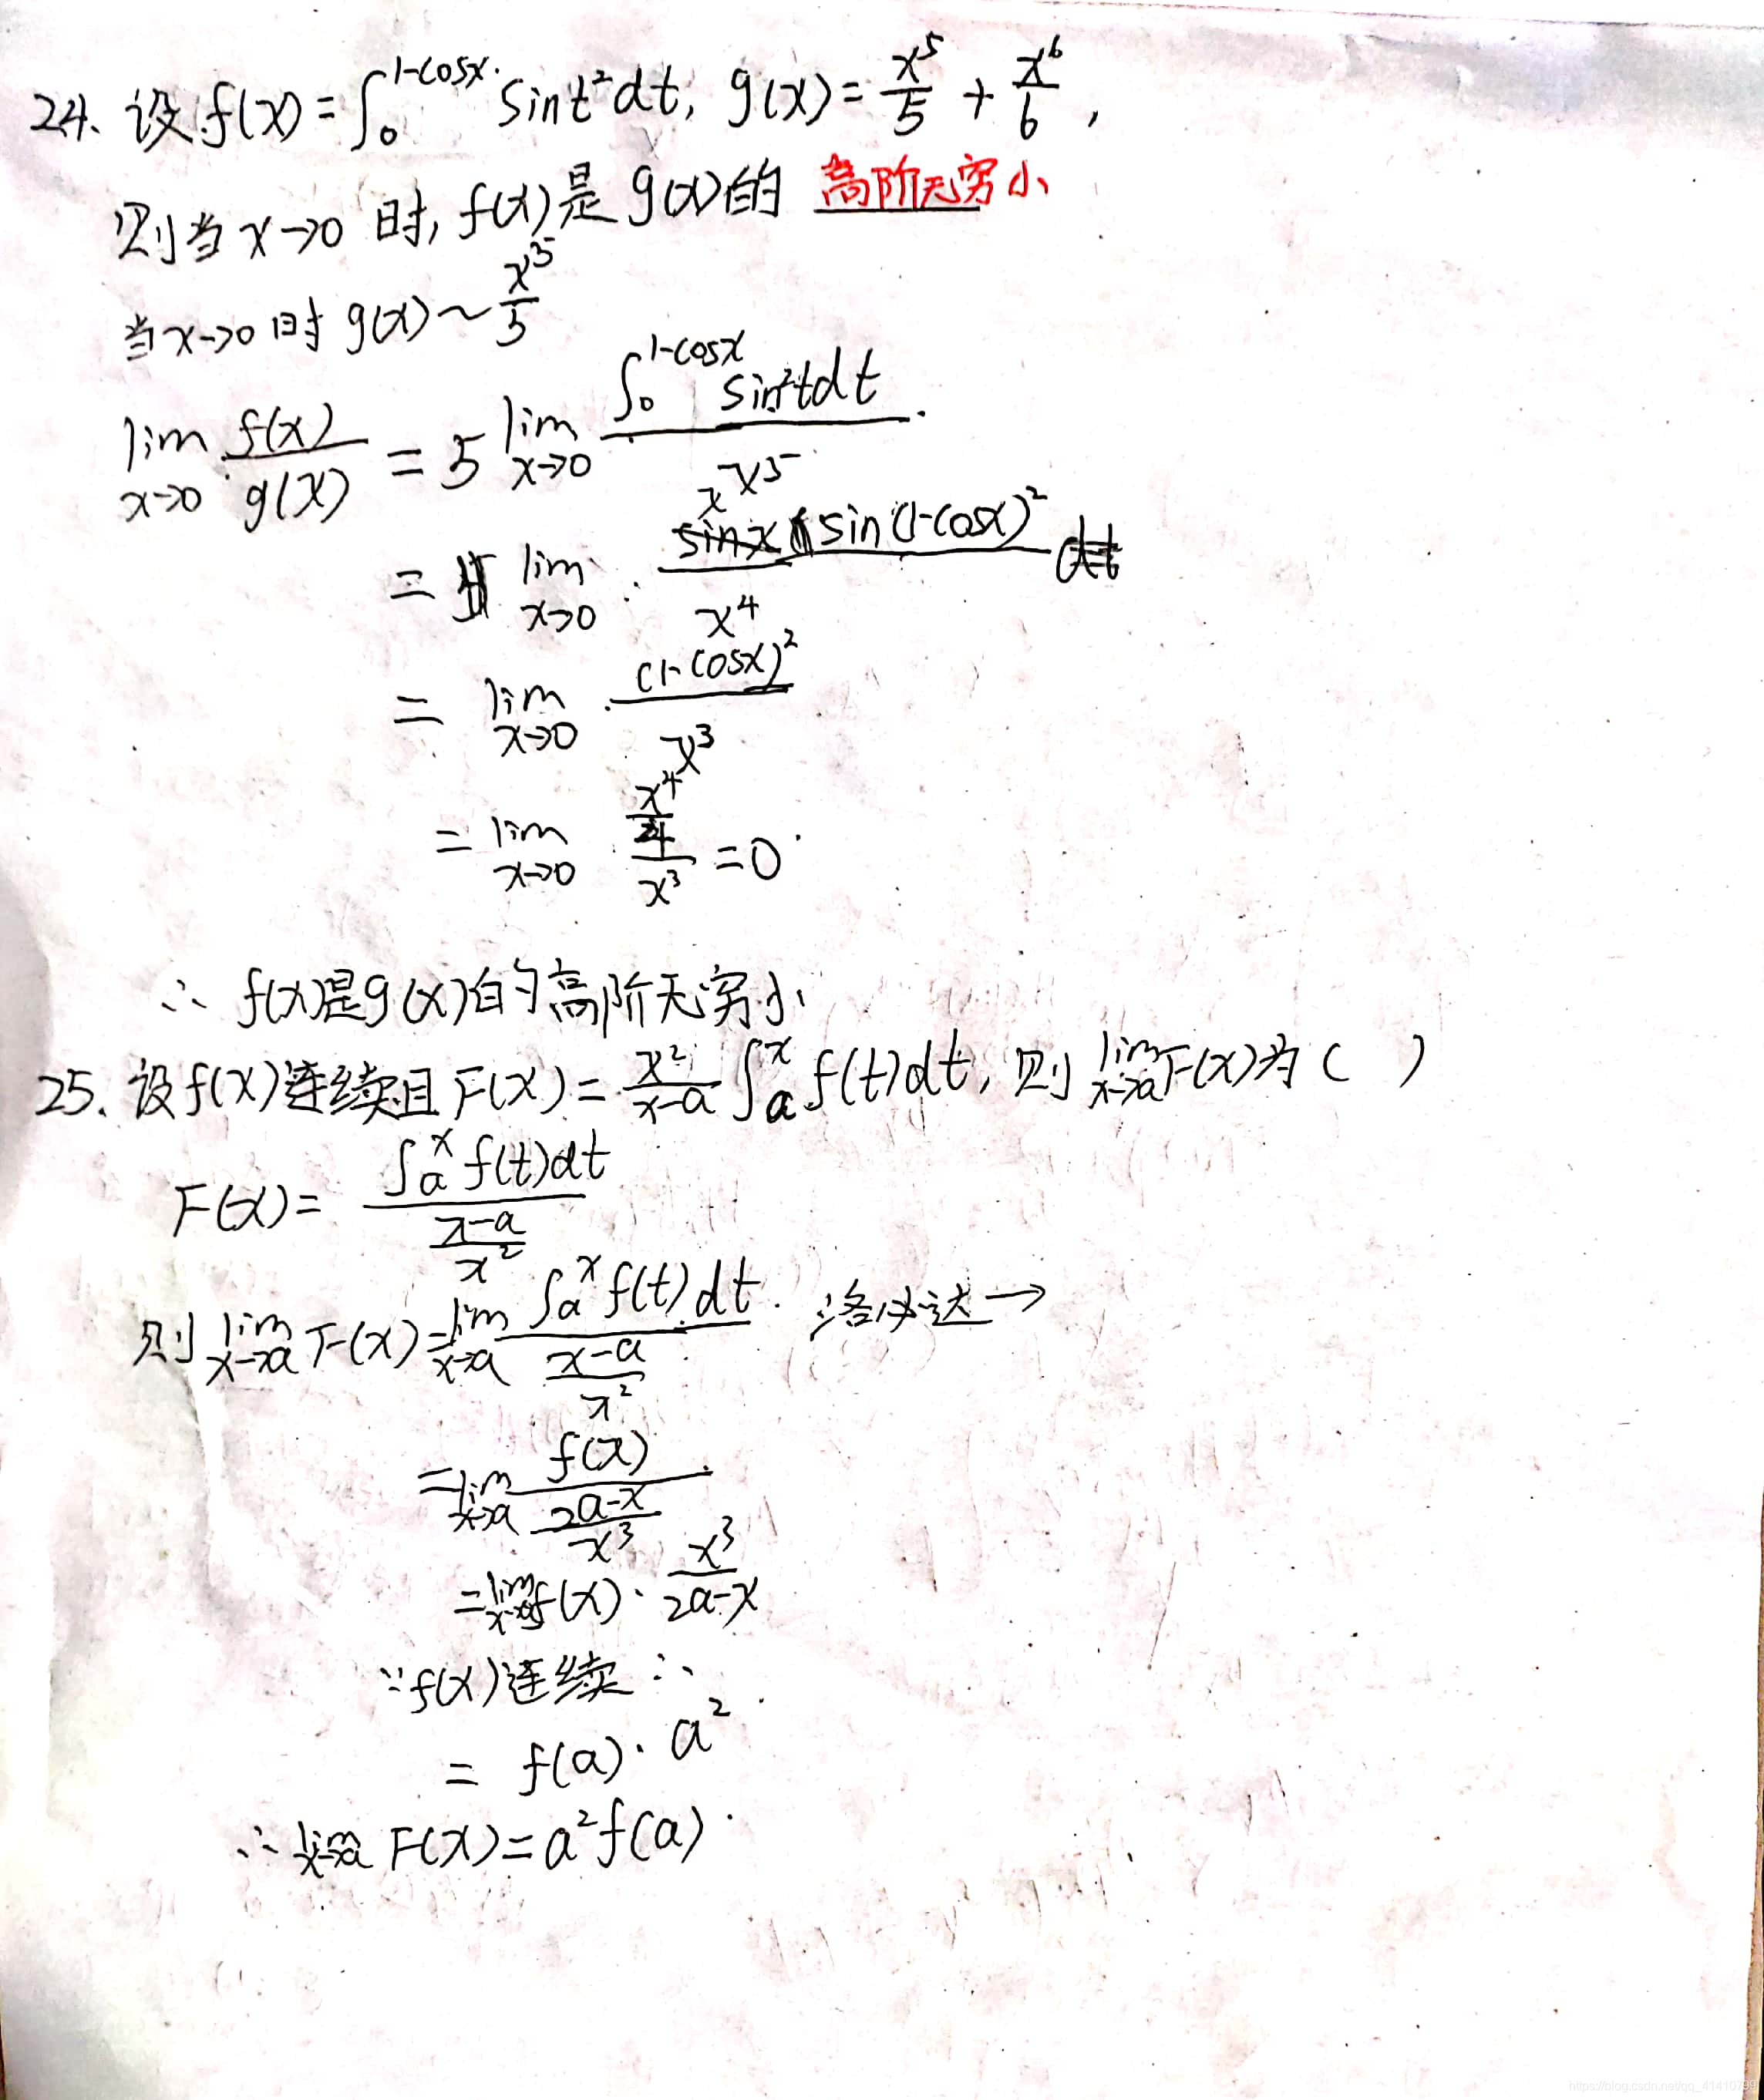 24. 设 f(x) = ∫₀^{1-cosx} sint²dt, g(x) = x⁵/5 + x⁶/6,
则当 x→0 时, f(x)是g(x)的 高阶无穷小
当x→0时 g(x)~x⁵/5
lim_{x→0} f(x)/g(x) = 5 lim_{x→0} ∫₀^{1-cosx} sin²tdt / x⁵
= lim_{x→0} x sin(1-cosx)² / x⁴
= lim_{x→0} (1-cosx)² / x³
= lim_{x→0} (x⁴/4) / x³ = 0
∴ f(x)是g(x)的高阶无穷小
25. 设f(x)连续且F(x) = x²/(x-a) ∫ₐˣ f(t)dt, 则 lim_{x→a} F(x)为( )
F(x) = ∫ₐˣ f(t)dt / ((x-a)/x²)
则 lim_{x→a} F(x) = lim_{x→a} ∫ₐˣ f(t)dt / ((x-a)/x²) 洛必达→
= lim_{x→a} f(x) / ((2a-x)/x³)
= lim_{x→a} f(x) · x³/(2a-x)
∵f(x)连续 ∴
= f(a) · a²
∴ lim_{x→a} F(x) = a²f(a)